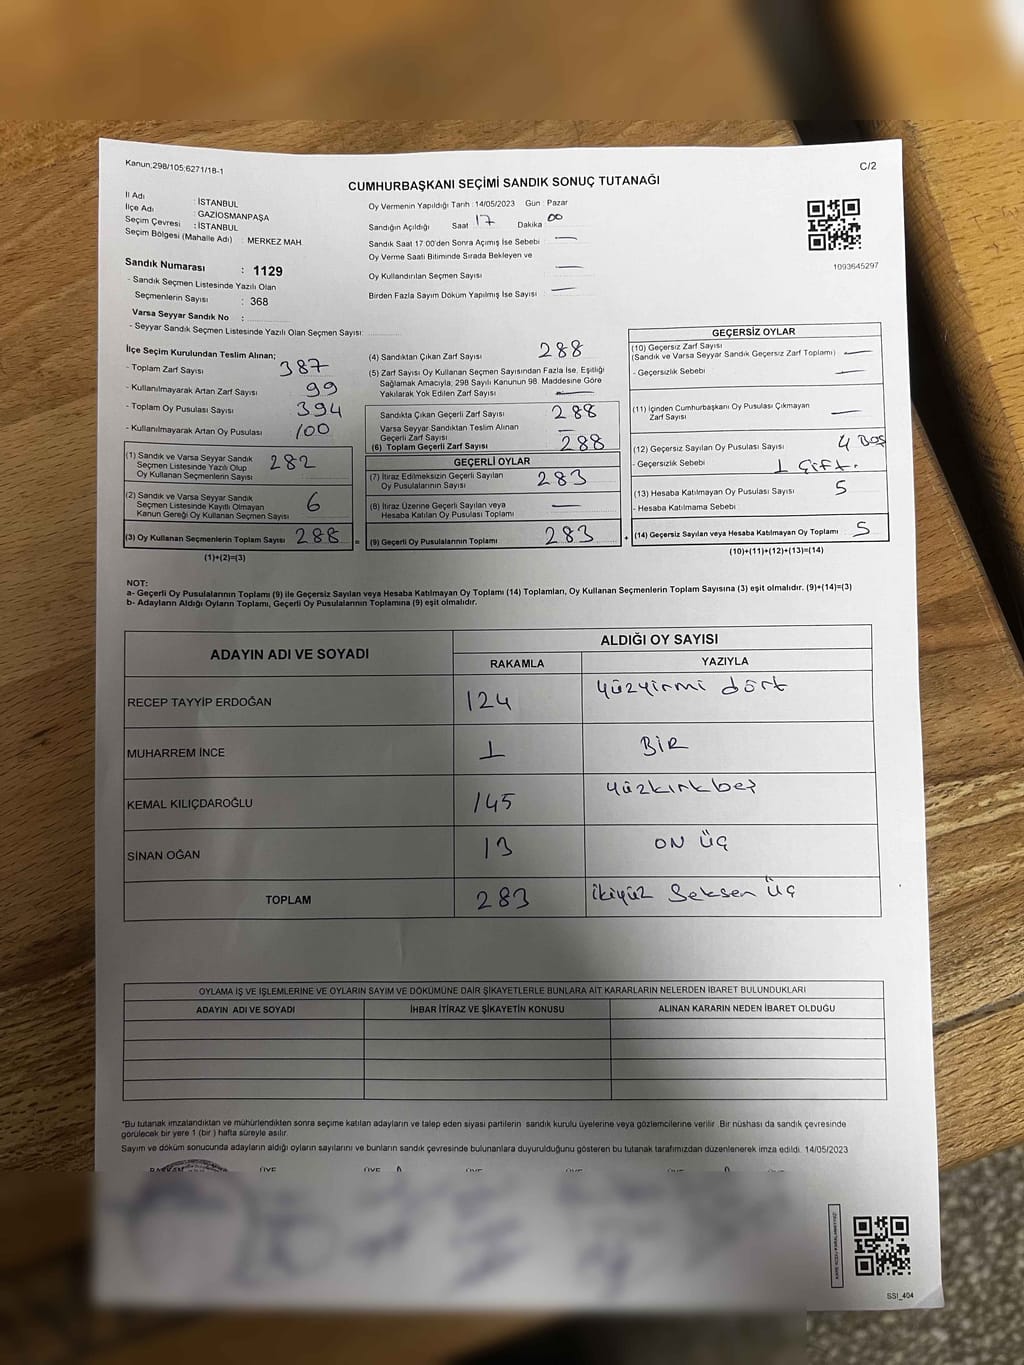 Kanun;298/105;6271/18-1
C/2
CUMHURBAŞKANI SEÇİMİ SANDIK SONUÇ TUTANAĞI
İl Adı : İSTANBUL
İlçe Adı : GAZİOSMANPAŞA
Seçim Çevresi : İSTANBUL
Seçim Bölgesi (Mahalle Adı) : MERKEZ MAH.
Oy Vermenin Yapıldığı Tarih : 14/05/2023 Gün : Pazar
Sandığın Açıldığı Saat 17 Dakika 00
Sandık Saat 17 00'den Sonra Açımış İse Sebebi : —
Oy Verme Saati Bitiminde Sırada Bekleyen ve
Oy Kullandırılan Seçmen Sayısı —
Birden Fazla Sayım Döküm Yapılmış İse Sayısı : —
1093645297
Sandık Numarası : 1129
- Sandık Seçmen Listesinde Yazılı Olan
Seçmenlerin Sayısı : 368
Varsa Seyyar Sandık No :
- Seyyar Sandık Seçmen Listesinde Yazılı Olan Seçmen Sayısı:
İlçe Seçim Kurulundan Teslim Alınan;
- Toplam Zarf Sayısı 387
- Kullanılmayarak Artan Zarf Sayısı 99
- Toplam Oy Pusulası Sayısı 394
- Kullanılmayarak Artan Oy Pusulası 100
(1) Sandık ve Varsa Seyyar Sandık
Seçmen Listesinde Yazılı Olup
Oy Kullanan Seçmenlerin Sayısı 282
(2) Sandık ve Varsa Seyyar Sandık
Seçmen Listesinde Kayıtlı Olmayan
Kanun Gereği Oy Kullanan Seçmen Sayısı 6
(3) Oy Kullanan Seçmenlerin Toplam Sayısı 288 =
(1)+(2)=(3)
(4) Sandıktan Çıkan Zarf Sayısı 288
(5) Zarf Sayısı Oy Kullanan Seçmen Sayısından Fazla İse, Eşitliği
Sağlamak Amacıyla, 298 Sayılı Kanunun 98. Maddesine Göre
Yakılarak Yok Edilen Zarf Sayısı —
Sandıkta Çıkan Geçerli Zarf Sayısı 288
Varsa Seyyar Sandıktan Teslim Alınan
Geçerli Zarf Sayısı —
(6) Toplam Geçerli Zarf Sayısı 288
GEÇERLİ OYLAR
(7) İtiraz Edilmeksizin Geçerli Sayılan
Oy Pusulalarının Sayısı 283
(8) İtiraz Üzerine Geçerli Sayılan veya
Hesaba Katılan Oy Pusulaları Toplamı —
(9) Geçerli Oy Pusulalarının Toplamı 283 +
GEÇERSİZ OYLAR
(10) Geçersiz Zarf Sayısı
(Sandık ve Varsa Seyyar Sandık Geçersiz Zarf Toplamı) —
- Geçersizlik Sebebi —
(11) İçinden Cumhurbaşkanı Oy Pusulası Çıkmayan
Zarf Sayısı —
(12) Geçersiz Sayılan Oy Pusulası Sayısı 4 BOŞ
- Geçersizlik Sebebi 1 Çift.
(13) Hesaba Katılmayan Oy Pusulası Sayısı 5
- Hesaba Katılmama Sebebi
(14) Geçersiz Sayılan veya Hesaba Katılmayan Oy Toplamı 5
(10)+(11)+(12)+(13)=(14)
NOT:
a- Geçerli Oy Pusulalarının Toplamı (9) ile Geçersiz Sayılan veya Hesaba Katılmayan Oy Toplamı (14) Toplamları, Oy Kullanan Seçmenlerin Toplam Sayısına (3) eşit olmalıdır. (9)+(14)=(3)
b- Adayların Aldığı Oyların Toplamı, Geçerli Oy Pusulalarının Toplamına (9) eşit olmalıdır.
ADAYIN ADI VE SOYADI
ALDIĞI OY SAYISI
RAKAMLA YAZIYLA
RECEP TAYYİP ERDOĞAN 124 yüzyirmi dört
MUHARREM İNCE 1 BİR
KEMAL KILIÇDAROĞLU 145 yüzkırkbeş
SİNAN OĞAN 13 ON ÜÇ
TOPLAM 283 ikiyüz Seksen üç
OYLAMA İŞ VE İŞLEMLERINE VE OYLARIN SAYIM VE DÖKÜMÜNE DAİR ŞİKAYETLERLE BUNLARA AİT KARARLARIN NELERDEN İBARET BULUNDUKLARI
ADAYIN ADI VE SOYADI İHBAR İTİRAZ VE ŞİKAYETİN KONUSU ALINAN KARARIN NEDEN İBARET OLDUĞU
*Bu tutanak imzalandıktan ve mühürlendikten sonra seçime katılan adayların ve talep eden siyasi partilerin sandık kurulu üyelerine veya gözlemcilerine verilir .Bir nüshası da sandık çevresinde
görülecek bir yere 1 (bir ) hafta süreyle asılır.
Sayım ve döküm sonucunda adayların aldığı oyların sayılarını ve bunların sandık çevresinde bulunanlara duyurulduğunu gösteren bu tutanak tarafımızdan düzenlenerek imza edildi. 14/05/2023
BAŞKAN ÜYE ÜYE ÜYE ÜYE ÜYE ÜYE
SSI_404